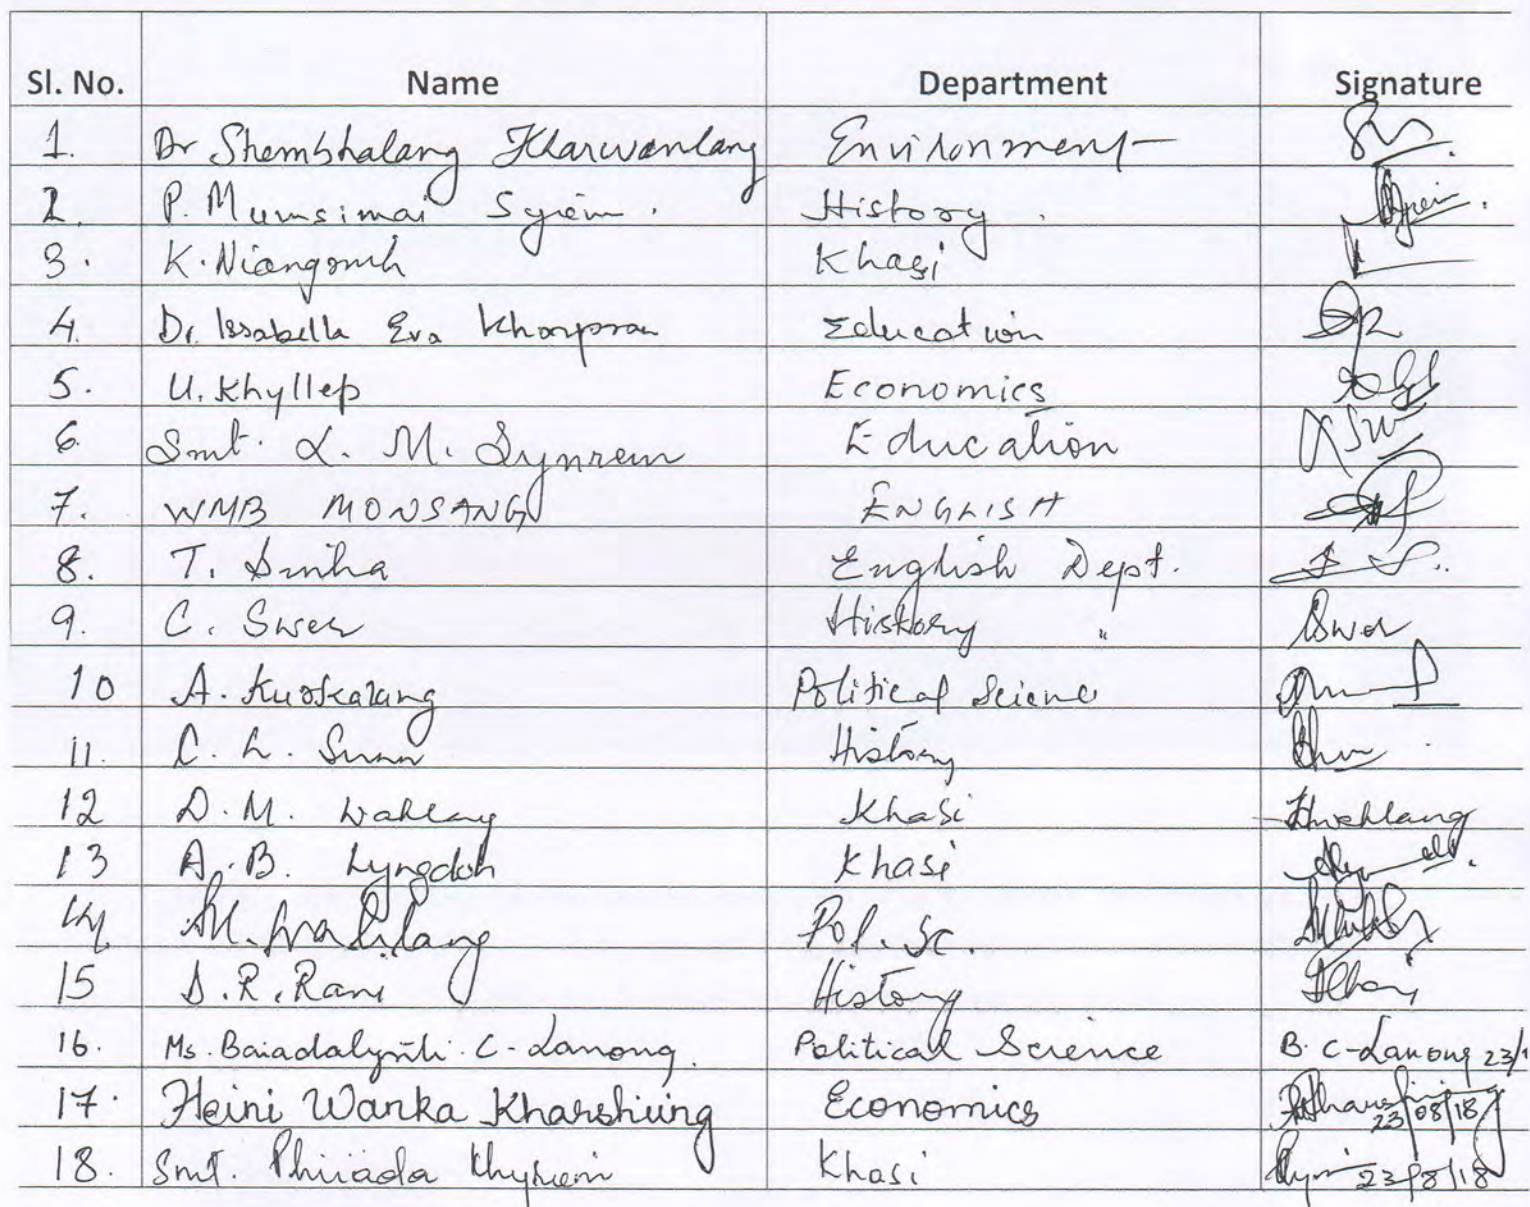 Sl. No. Name Department Signature
1. Dr Shembhalang Kharwanlang Environment
2 P. Mumsimai Syiem. History.
3. K. Niangomh Khasi
4. Dr. Issabella Eva Kharpran Education
5. U. Khyllep Economics
6. Smt. L. M. Synrem Education
7. WMB MONSANG ENGLISH
8. T. Sinha English Dept.
9. C. Swer History " Swer
10 A. Kuotkalang Political Science
11. C. L. History
12 D. M. Wahlang Khasi Hwahlang
13 A. B. Lyngdoh Khasi
14 M. Wahlang Pol. Sc.
15 D. R. Rani History
16. Ms. Baiadalynti C-Lamong. Political Science B. C-Lamong 23/
17. Heini Wanka Kharshiing Economics 23/08/18
18. Smt. Khasi 23/8/18